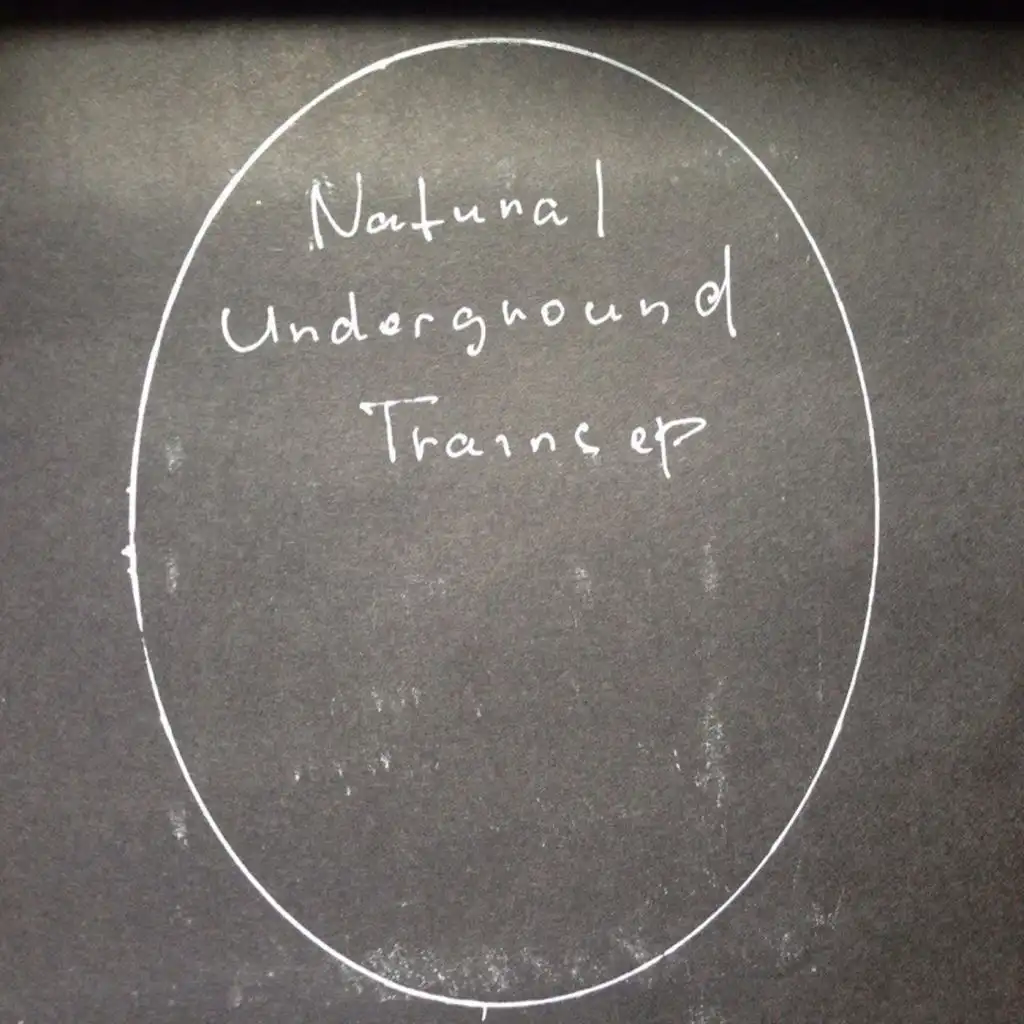 Natural
Underground
Trains ep